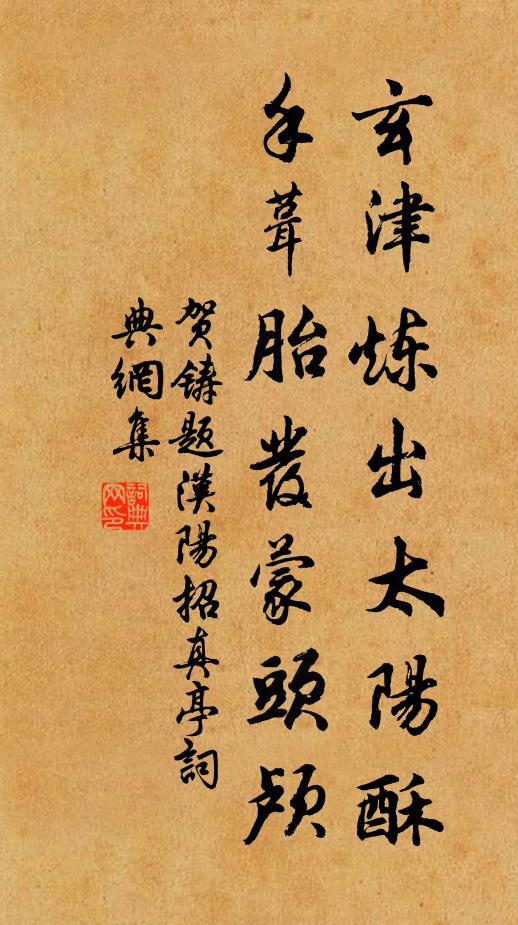 玄津炼出太陽酥
手葺胎发蒙頭颅
贺鑄題漢陽招真亭詞
典網集
詞典網印